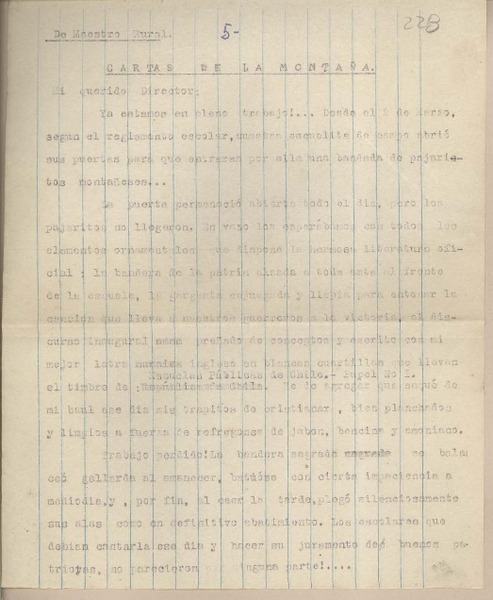 De Maestro Rural.
5-
228
CARTAS DE LA MONTAÑA.
Mi querido Director:
Ya estamos en pleno trabajo!... Desde el de Marzo,
segun el reglamento escolar, nuestra escuelita de campo abrió
sus puertas para que entraran por ella una bandada de pajari-
tos montañeses...
La puerta permaneció abierta todo el dia, pero los
pajaritos no llegaron. En vano los esperábamos con todos los
elementos ornamentales que dispone la hermosa literatura ofi-
cial ; la bandera de la patria alzada a toda asta al frente
de la escuela, la garganta enjuagada y limpia para entonar la
cancion que lleva a nuestros guerreros a la victoria, el dis-
curso inaugural preñado de conceptos y escrito con mi
mejor letra inglesa en blancas cuartillas que llevan
Escuelas Públicas de Chile.- Papel No I.
el timbre de : República de Chile. He de agregar que saqué de
mi baul ese dia mis trapitos de cristianar, bien planchados
y limpios a fuerza de refregones de jabon, bencina y amoniaco.
Trabajo perdido! La bandera sagrada se balan
ceó gallarda al amanecer, batióse con cierta impaciencia a
mediodia, y , por fin, al caer la tarde, plegó silenciosamente
sus alas como en definitivo abatimiento. Los escolares que
debian cantarla ese dia y hacer su juramento de buenos pa-
triotas, no parecieron ninguna parte!....